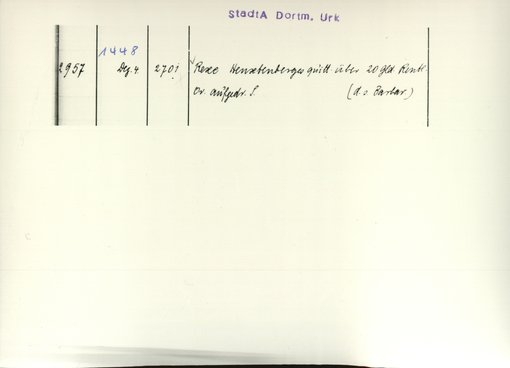 StadtA Dortm. Urk
1448
2957 Dez. 4. 2701 Rese Henxtenberges quitt über 20 gld. Rente.
Or. aufgedr. S. (d. s. Barbar)